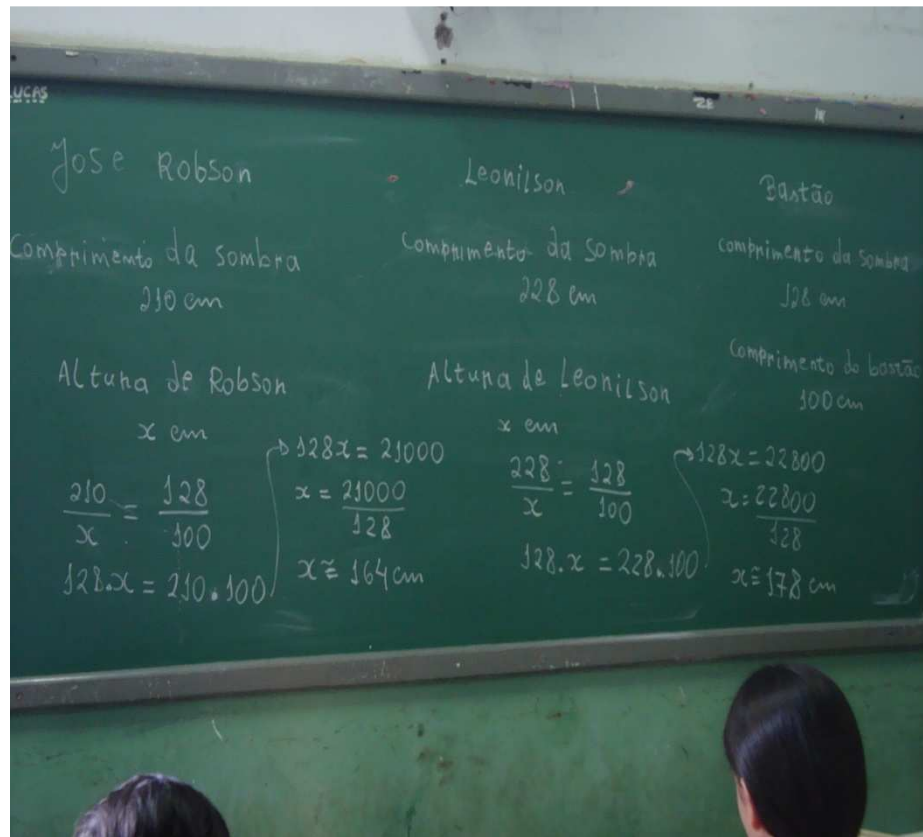 LUCAS
José Robson
Comprimento da sombra
210 cm
Altura de Robson
x cm
210/x = 128/100
128.x = 210.100
128x = 21000
x = 21000/128
x ≅ 164 cm
Leonilson
Comprimento da sombra
228 cm
Altura de Leonilson
x cm
228/x = 128/100
128.x = 228.100
128x = 22800
x = 22800/128
x ≅ 178 cm
Bastão
comprimento da sombra
128 cm
Comprimento do bastão
100 cm